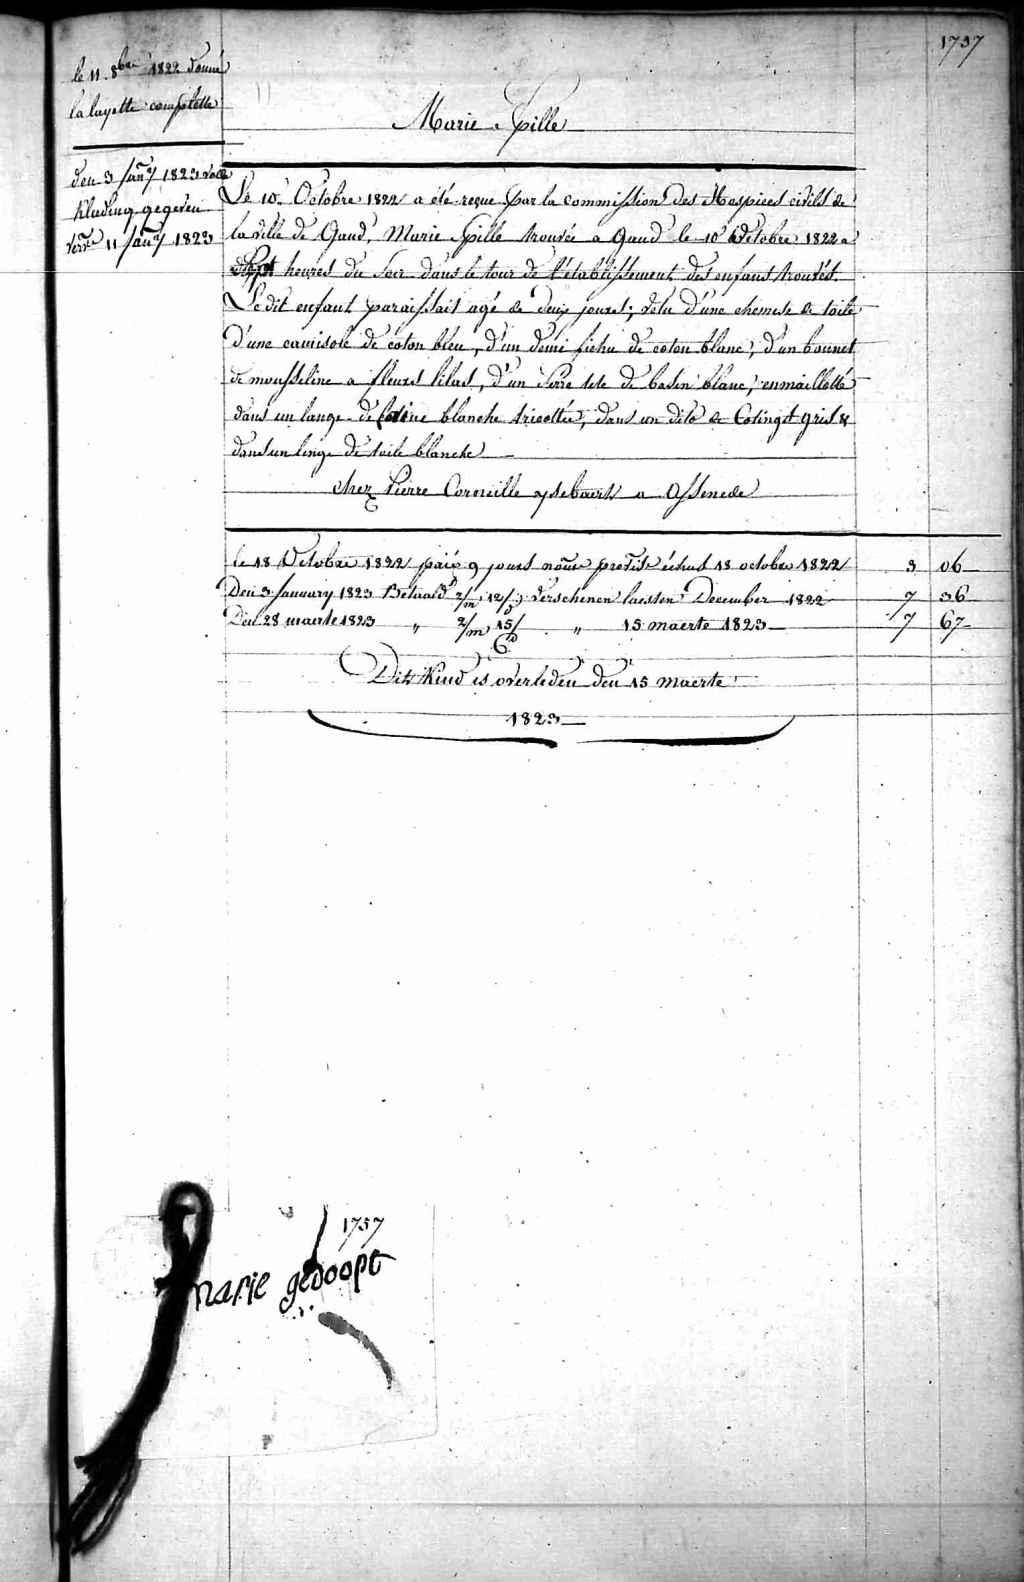 1737
le 11 8bre 1822 donné
la layette complette
den 3 January 1823 volle
kluding gegeven
verre 11 January 1823
Marie Spille
Le 10 Octobre 1822 a été reçue par la commission des Hospices civils de
la ville de Gand, Marie Spille trouvée a Gand le 10 Octobre 1822 a
sept heures du soir dans le tour de l'établissement des enfans trouvés.
Le dit enfant paraissait agé de deux jours; vêtu d'une chemise de toile
d'une camisole de coton bleu, d'un demi fichu de coton blanc, d'un bonnet
de mousseline a fleurs lilas, d'un serre tete de basin blanc, enmaillotté
dans un lange de laine blanche tricottée, dans un dito de Cotingt gris &
dans un linge de toile blanche
chez Pierre Corneille ysebaert a Assenede
le 18 Octobre 1822 paié 9 jours nourre échus 18 octobre 1822 3 06
Den 3 January 1823 Betaald 2/m 12/ verschenen laesten December 1822 7 36
Den 28 maerte 1823 „ 2/m 15/ „ 15 maerte 1823 7 67
Dit Kind is overleden den 15 maerte
1823
1737
marie gedoopt